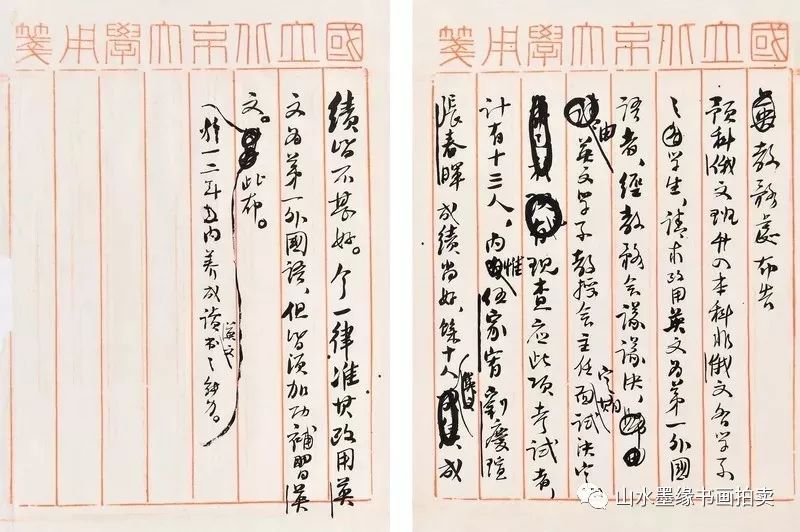 國立北京大學用箋
教務處布告
預科俄文班升入本科非俄文各學系
之学生，請求改用英文為第一外國
語者，經教務会議議決，
由英文学系教授会主任定期面試決定
現查應此項考試者，
計有十三人，內惟伍家宥劉慶瑄
張春暉成績尚好，餘十人成
國立北京大學用箋
績皆不甚好。今一律准其改用英
文為第一外國語，但皆須加功補習英
文。此布。
一二年內養成讀英文書之能力。
山水墨缘书画拍卖